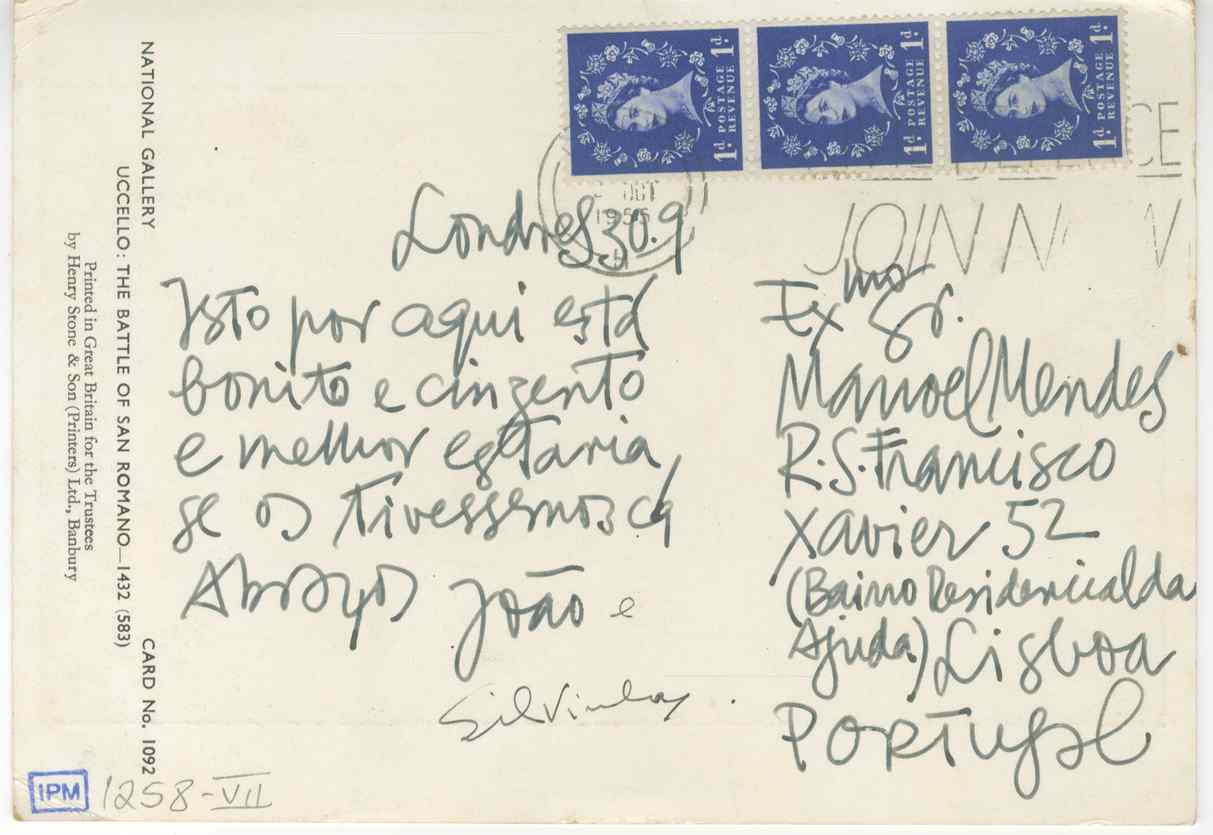 NATIONAL GALLERY
UCCELLO: THE BATTLE OF SAN ROMANO—1432 (583)
CARD No. 1092
Printed in Great Britain for the Trustees
by Henry Stone & Son (Printers) Ltd., Banbury
1d POSTAGE REVENUE 1d
1d POSTAGE REVENUE 1d
1d POSTAGE REVENUE 1d
1955
JOIN
Londres 30.9
Isto por aqui está
bonito e cinzento
e melhor estaria,
se os tivessemos cá
Abraços João e
Silvinha.
Exmo Sr.
Manoel Mendes
R. S. Francisco
Xavier 52
(Bairro Residencial da
Ajuda) Lisboa
Portugal
IPM 1258-VII